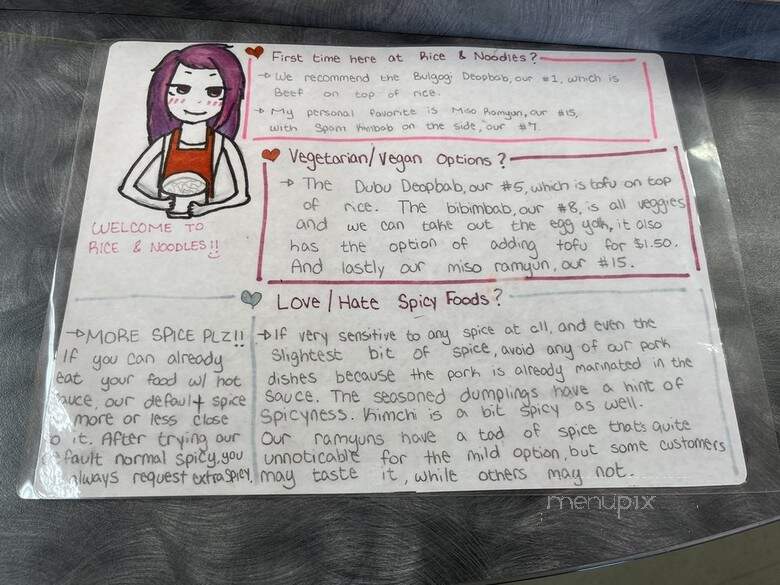 First time here at Rice & Noodles?
→ We recommend the Bulgogi Deopbab, our #1, which is
Beef on top of rice.
→ My personal favorite is Miso Ramyun, our #15,
with Spam Kimbab on the side, our #7.
Vegetarian/Vegan Options?
→ The Dubu Deopbab, our #5, which is tofu on top
of rice. The bibimbab, our #8, is all veggies
and we can take out the egg yolk, it also
has the option of adding tofu for $1.50.
And lastly our miso ramyun, our #15.
WELCOME TO
RICE & NOODLES!!
Love/Hate Spicy Foods?
→ MORE SPICE PLZ!!
If you can already
eat your food w/ hot
sauce, our default spice
more or less close
to it. After trying our
default normal spicy, you
always request extra spicy.
→ If very sensitive to any spice at all, and even the
slightest bit of spice, avoid any of our pork
dishes because the pork is already marinated in the
sauce. The seasoned dumplings have a hint of
spicyness. Kimchi is a bit spicy as well.
Our ramyuns have a tad of spice that's quite
unnoticable for the mild option, but some customers
may taste it, while others may not.
menupix